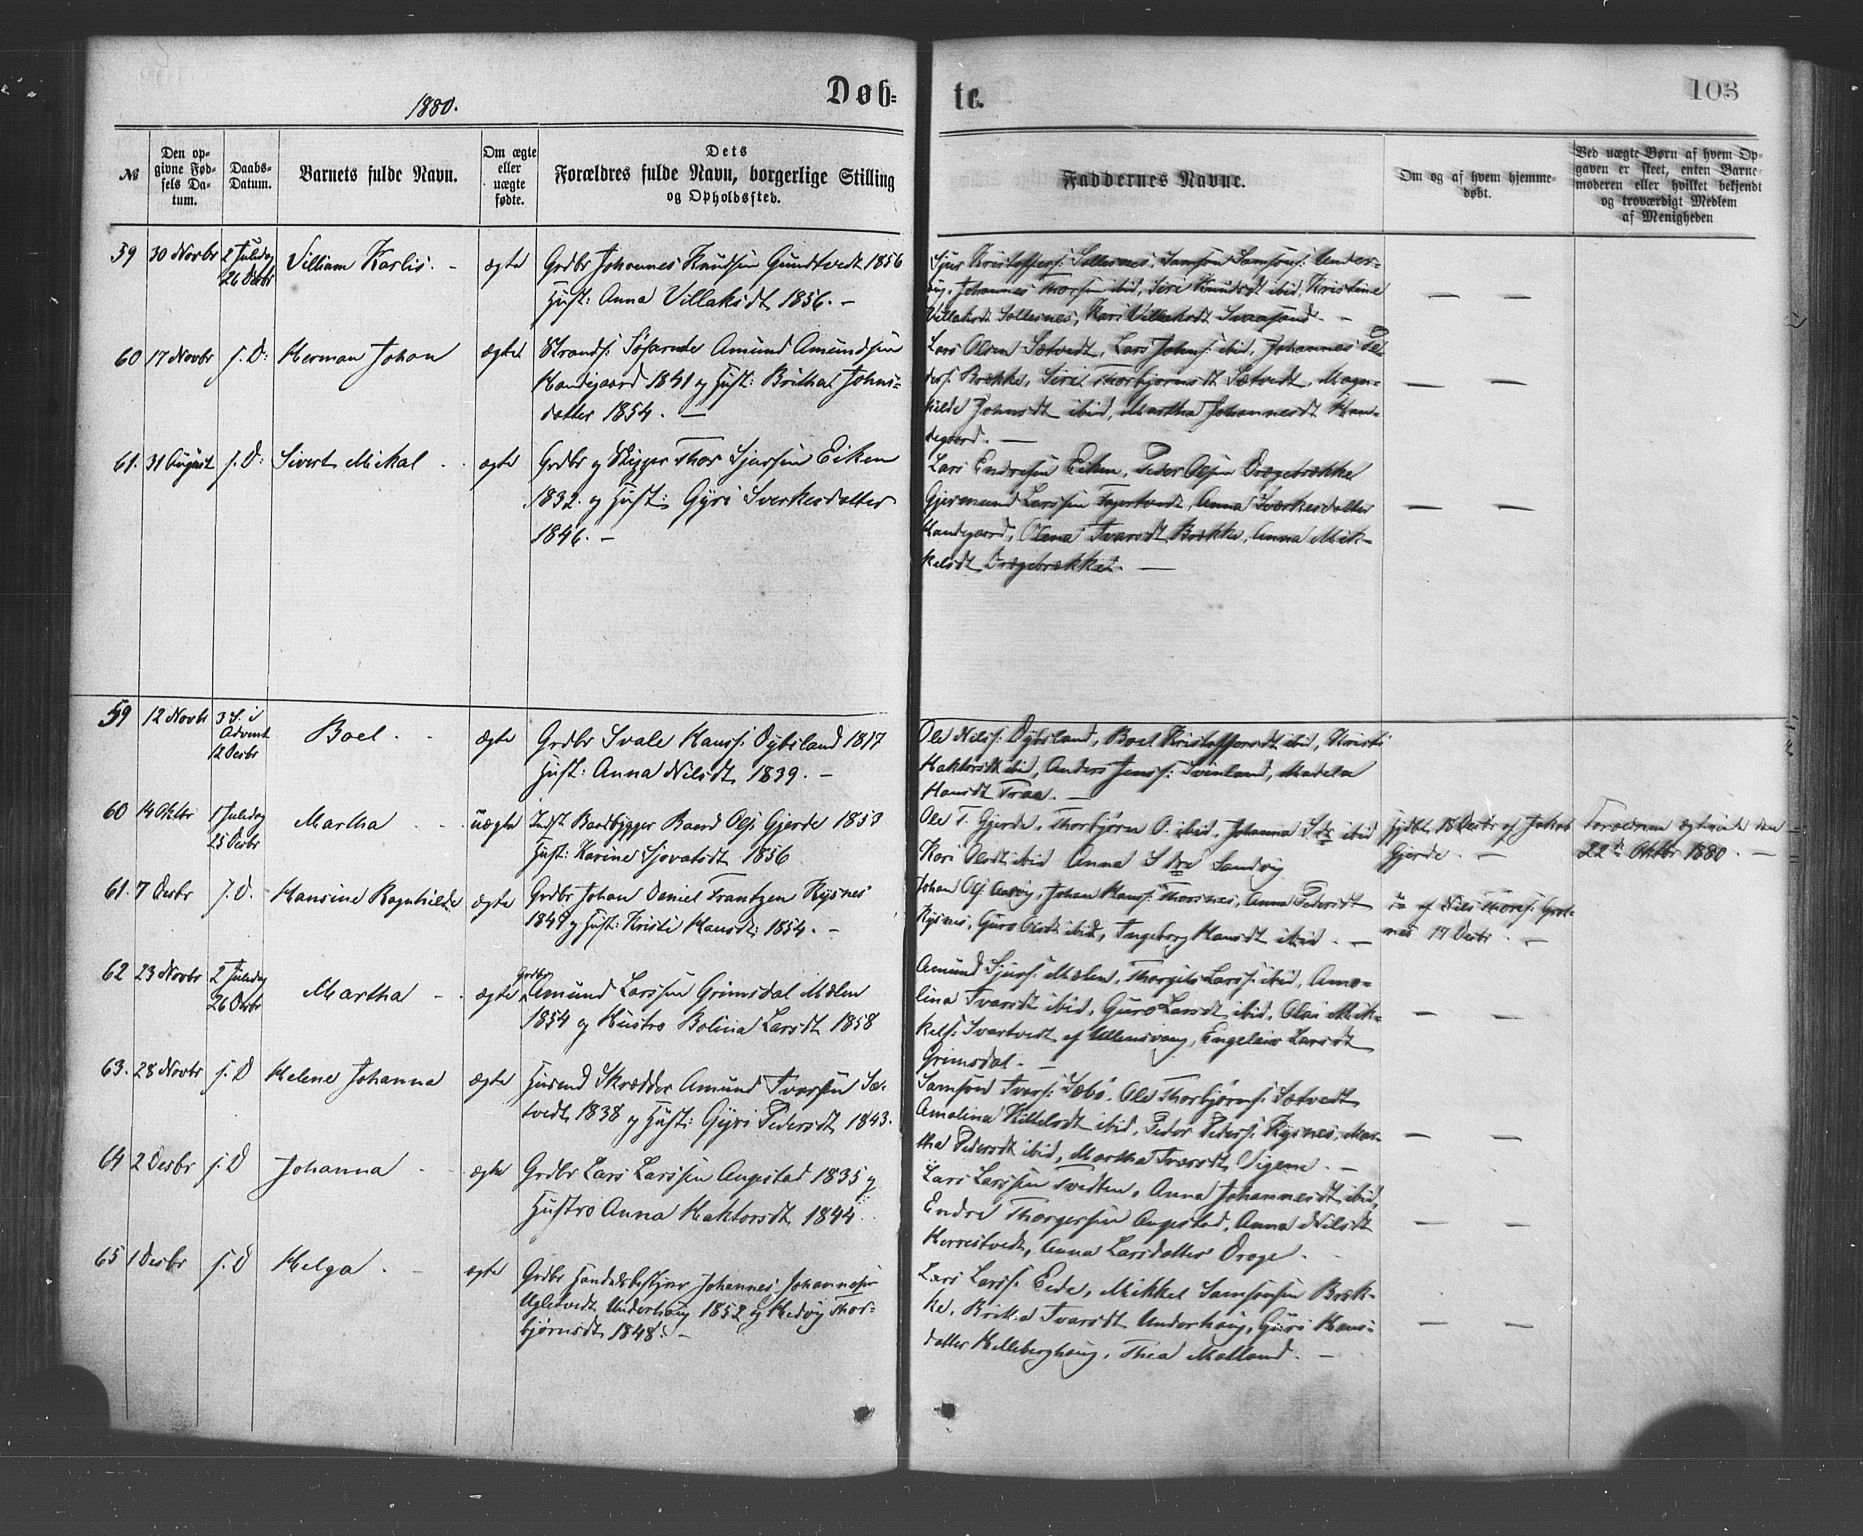 1880.
Døb=
te.
103
№
Den op-
givne Fød-
sels Da-
tum.
Daabs-
Datum.
Barnets fulde Navn.
Om ægte
eller
uægte
fødte.
Dets
Forældres fulde Navn, borgerlige Stilling
og Opholdssted.
Faddernes Navne.
Om og af hvem hjemme-
døbt.
Ved uægte Børn af hvem Op-
gaven er skeet, enten Barne-
moderen eller hvilket bekjendt
og troværdigt Medlem
af Menigheden
59 30 Novbr 2 Juledag
26 Desbr
Villiam Karlis. - ægte
Grdbr Johannes Knudsen Gundtvedt 1856
Hust: Anna Villaksdt 1856. -
Sjur Kristoffers: Sollesnes, Samson Samsons: Under-
Johannes Thorsen ibid, Siri Knudsdt ibid, Kristine
Villaksdt Sollesnes, Kari Villaksdt Svaasand. -
— —
60 17 Novbr s. D: Herman Johan ægte
Strands: Søfarende Amund Amundsen
Handegaard 1841 og Hust: Britha Johns-
datter 1854. —
Lars Olsen Sætvedt, Lars Johns: ibid, Johannes Pe
ders: Brække, Siri Thorbjornsdt Sætvedt, Magn-
hilde Johnsdt ibid, Martha Johannesdt Han-
degaard. —
— —
61. 31 August s. D: Sivert Mikal ægte
Grdbr og Skipper Thor Sjursen Eiken
1832. og Hust: Gyri Sverkesdatter
1846. -
Lars Endresen Eiken, Peder Olsen Drægebrække
Gjermund Larssen Fagertvedt, Anna Sverkesdatter
Handegaard, Olena Ivarsdt Brække, Anna Mik-
kelsdt Drægebrække. —
— —
59 12 Novbr 3 S. i
Advent
12 Desbr
Boel ægte
Grdbr Svale Hanss: Dybsland 1817
Hust: Anna Nilsdt 1839. -
Ole Nilss: Dybsland, Boel Kristoffersdt ibid, Kristi
Haktorsdt ibid, Anders Jenss: Svinland, Madela
Hansdt Traa. —
60 14 Oktbr 1 Juledag
25 Desbr
Martha uægte
Indst Baadbygger Baard Ols: Gjerde 1853
Hust: Karine Sjovatsdt 1856
Ole T. Gjerde, Thorbjørn O. ibid, Johanna ibid
Kari Olsdt ibid Anna Sandvig
hjdbt 18 Desbr af Jakob
Gjerde. —
Foreldrene ægteviet den
22d Oktbr 1880. —
61. 7 Desbr s. D. Hansine Ragnhilde ægte
Grdbr Johan Daniel Frantzen Rysnes
1849 og Hust: Kristi Hansdt: 1854. -
Johan Ols: Aasvig, Johan Hans: Thorsnes, Anna Pedersdt
Rysnes, Guro Olsdt ibid, Ingeborg Hansdt ibid. —
do af Nils Thores: Grot-
nes 17 Desbr. —
62 23 Novbr 2 Juledag
26 Desbr
Martha - ægte
Grdbr
Amund Larssen Grimsdal Mælen
1854 og Hustro Bolina Larsdt 1858
Amund Sjurs: Mælen, Thorgils Larss: ibid, Ama-
lina Ivarsdt ibid, Guro Larsdt ibid, Olai Mik-
kels: Svartvedt af Ullensvang, Engeleiv Larsdt
Grimsdal. —
— —
63. 28 Novbr s. D Helene Johanna ægte
Husmd Skrædder Amund Ivarsen Sæ-
tvedt 1838 og Hust: Gyri Pedersdt 1843.
Samson Ivers: Sæbø, Ole Thorbjørns: Sætvedt
Amalina Kittelsdt ibid, Peder Peders: Rysnes, Mar-
tha Pedersdt ibid, Martha Ivarsdt Digene. —
— —
64 2 Desbr s. D Johanna ægte
Grdbr Lars Larssen Augestad 1835 og
Hustro Anna Haktorsdt 1844.
Lars Larssen Tvedten, Anna Johannesdt ibid,
Endre Thorgersen Augestad, Anna Nilsdt
Herrestvedt, Anna Larsdatter Drage.
— —
65 1 Desbr s. D Helga - ægte
Grdbr Handelsbestyrer Johannes Johannesen
Ugletvedt Underhaug 1852 og Hedvig Thor-
bjørnsdt 1848. -
Lars Larss: Eide, Mikkel Samsonsen Bræk-
ke, Britha Ivarsdt Underhaug, Guri Hans-
datter Helleberghaug, Thea Malland. —
— —